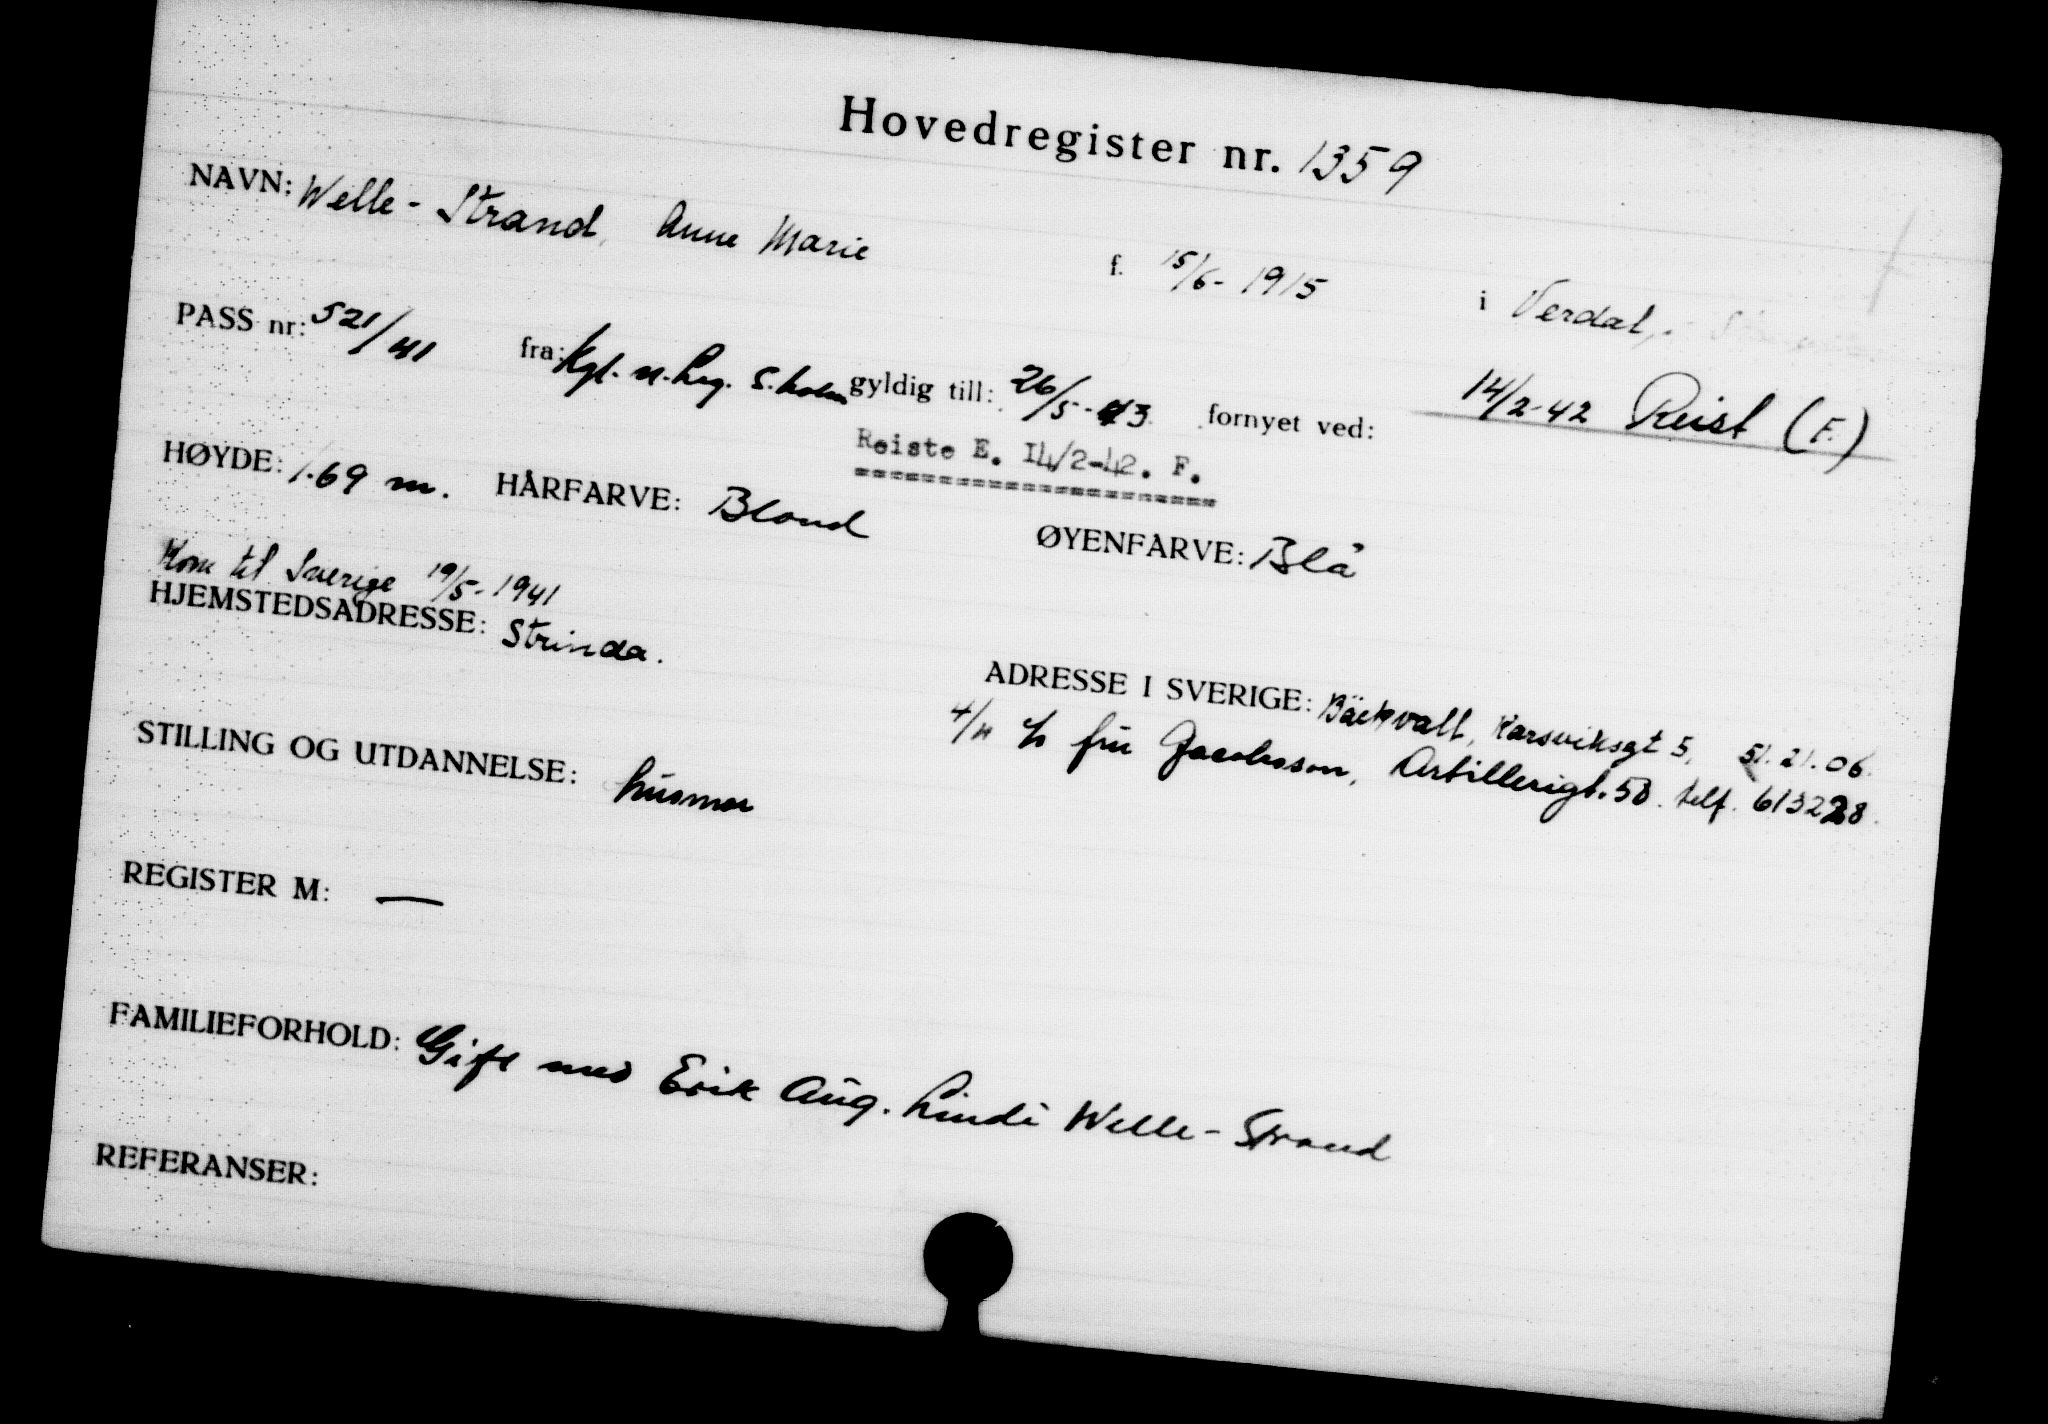 Hovedregister nr. 1359
NAVN: Welle-Strand, Anne Marie f. 15/6-1915 i Verdal,
PASS nr: 521/41 fra: Kgl. n. Leg. S.holm gyldig till: 26/5-43 fornyet ved: 14/2-42 Reist (F.)
Reiste E. I4/2-42. F.
=====================
HØYDE: 1.69 m. HÅRFARVE: Blond ØYENFARVE: Blå
Kom til Sverige 19/5-1941
HJEMSTEDSADRESSE: Strinda.
ADRESSE I SVERIGE: Bäckvall, Karsviksgt 5, 51.21.06.
4/11 c/o fru Jacobsson, Artillerigt. 58. telf. 613228.
STILLING OG UTDANNELSE: husmor
REGISTER M: —
FAMILIEFORHOLD: Gift med Erik Aug. Linde Welle-Strand
REFERANSER: